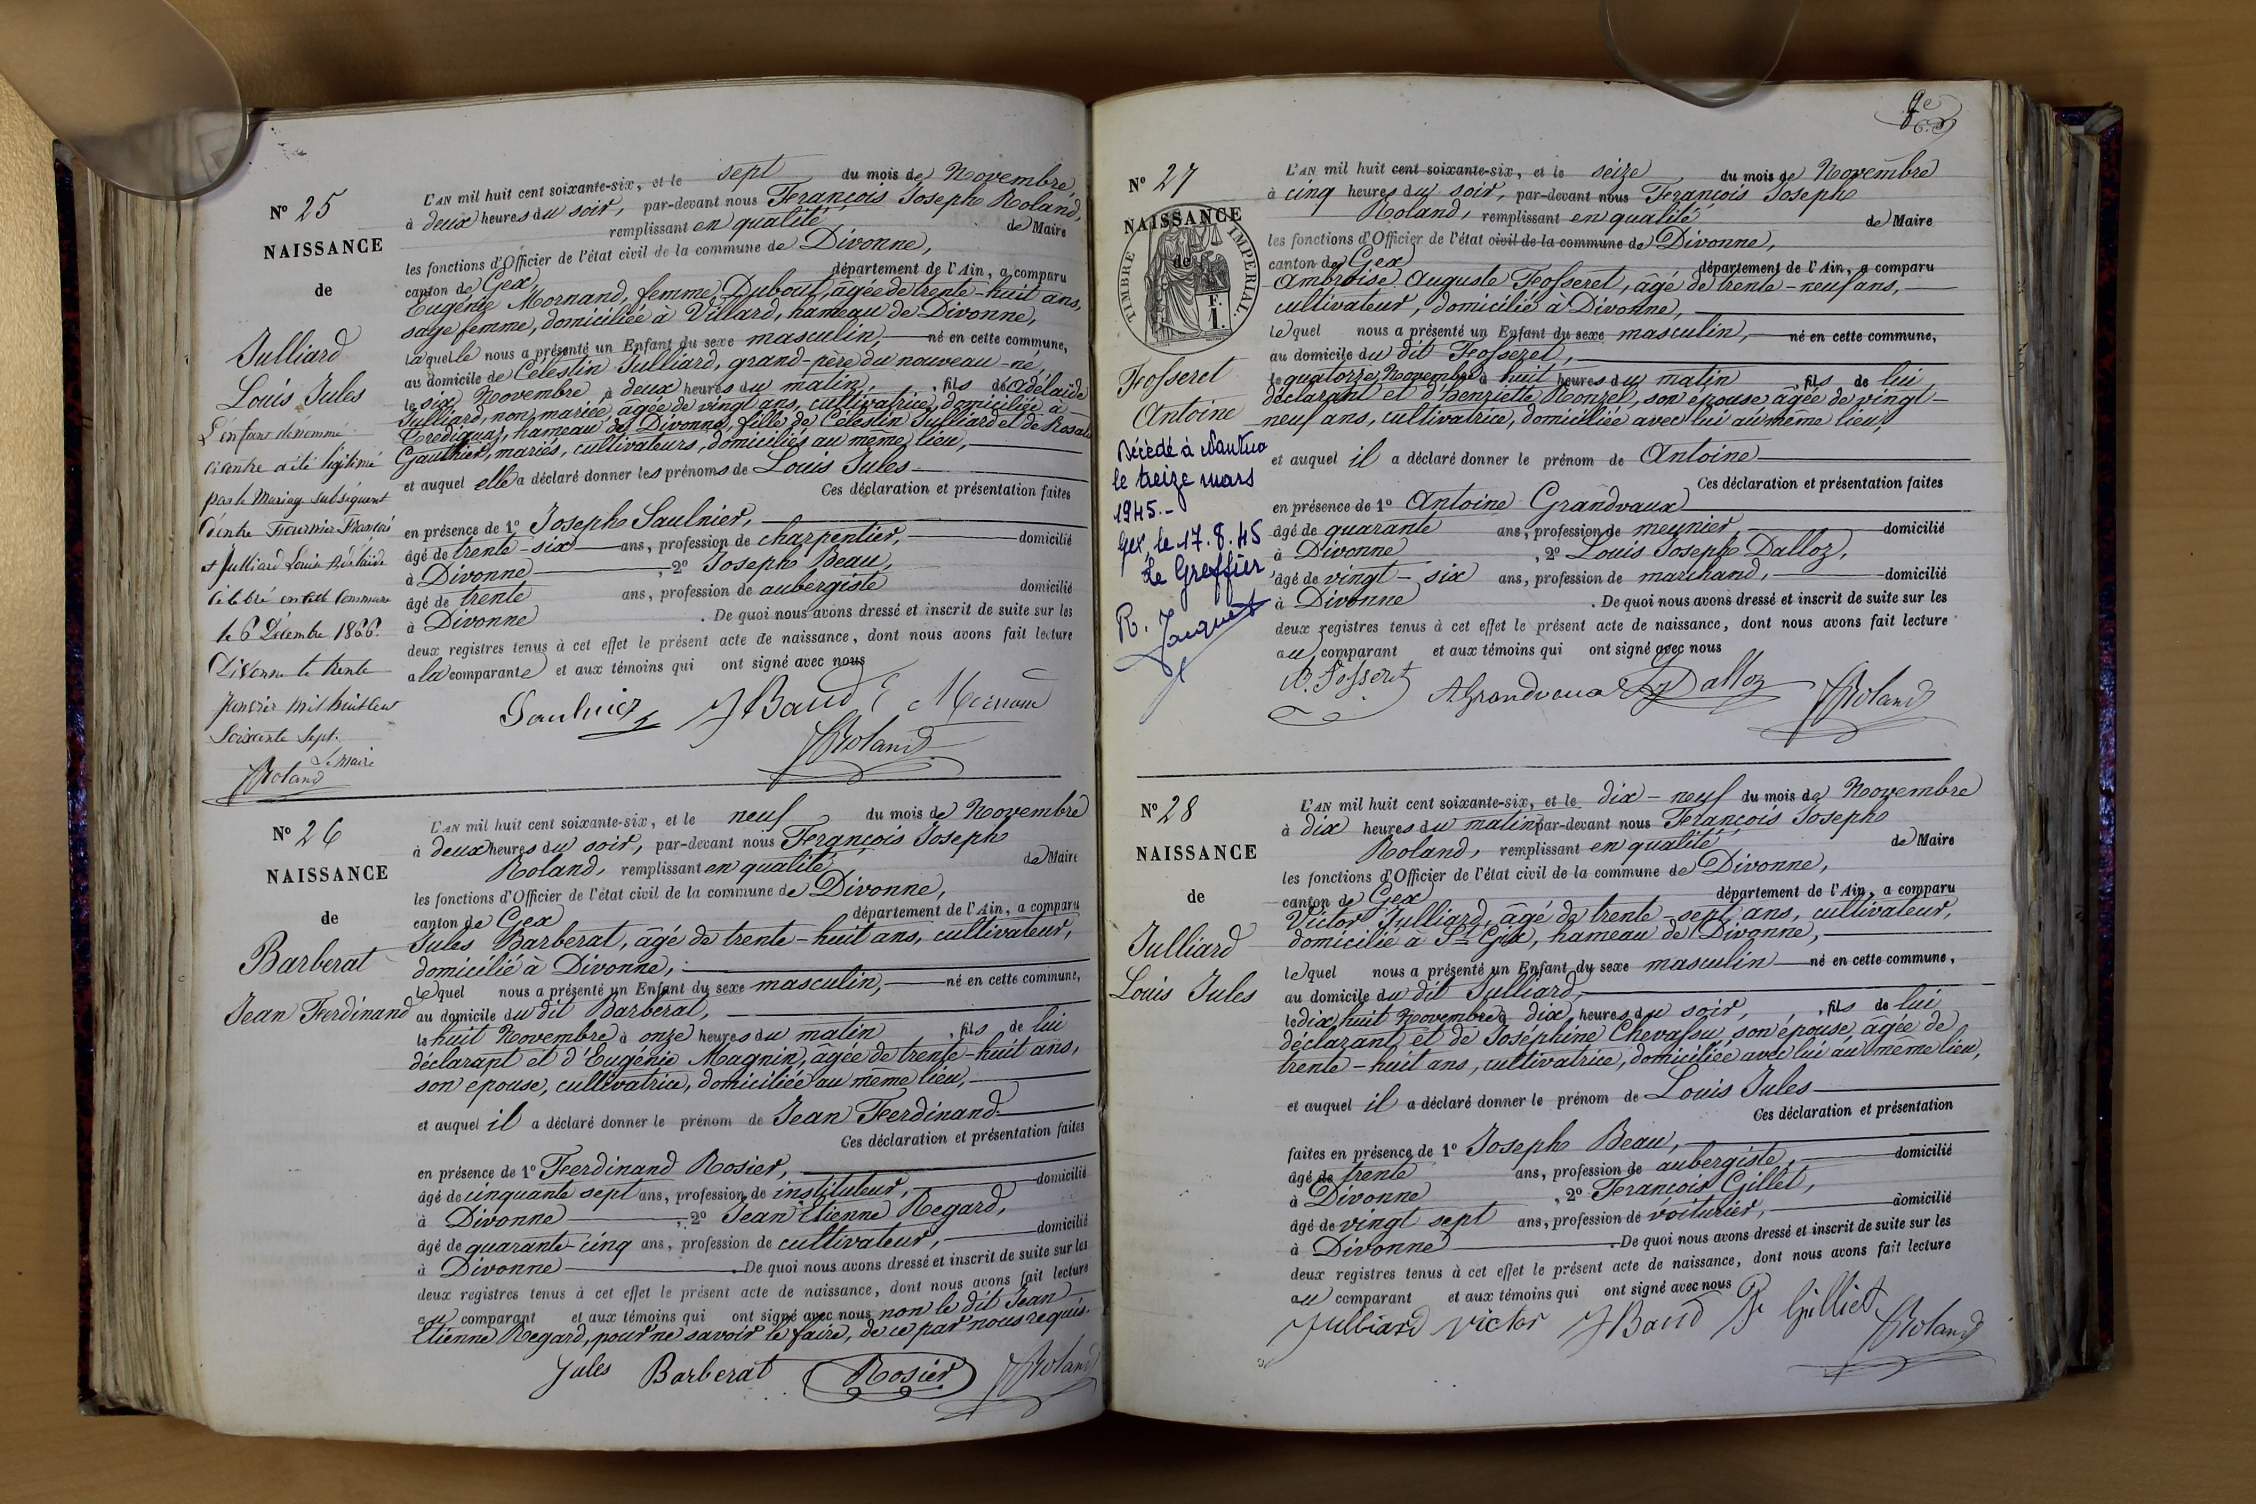 Nº 25
NAISSANCE
de
Julliard
Louis Jules
L'enfant dénommé
ci contre a été légitimé
par le Mariage subséquent
d'entre Fournier François
et Julliard Louise Adélaïde
célébré en cette Commune
le 6 Décembre 1866.
Divonne le trente
janvier mil huit cent
soixante sept.
Le Maire
JRoland
L'AN mil huit cent soixante-six, et le sept du mois de Novembre,
à deux heures du soir, par-devant nous François Joseph Roland,
remplissant en qualité de Maire
les fonctions d'Officier de l'état civil de la commune de Divonne,
canton de Gex, département de l'Ain, a comparu
Eugénie Mornand, femme Dubout, âgée de trente-huit ans,
sage femme, domiciliée à Villard, hameau de Divonne,
laquelle nous a présenté un Enfant du sexe masculin, né en cette commune,
au domicile de Célestin Julliard, grand-père du nouveau-né,
le six Novembre à deux heures du matin, fils de Adélaïde
Julliard, non mariée, âgée de vingt ans, cultivatrice, domiciliée à
hameau de Divonne, fille de Célestin Julliard et de Rosalie
Gauthier, mariés, cultivateurs, domiciliés au même lieu,
et auquel elle a déclaré donner les prénoms de Louis Jules
Ces déclaration et présentation faites
en présence de 1º Joseph Saulnier,
âgé de trente-six ans, profession de charpentier, domicilié
à Divonne, 2º Joseph Beau,
âgé de trente ans, profession de aubergiste domicilié
à Divonne. De quoi nous avons dressé et inscrit de suite sur les
deux registres tenus à cet effet le présent acte de naissance, dont nous avons fait lecture
a la comparante et aux témoins qui ont signé avec nous
Saulnier JBaud E Mornand
JRoland
Nº 26
NAISSANCE
de
Barberat
Jean Ferdinand
L'AN mil huit cent soixante-six, et le neuf du mois de Novembre
à deux heures du soir, par-devant nous François Joseph
Roland, remplissant en qualité de Maire
les fonctions d'Officier de l'état civil de la commune de Divonne,
canton de Gex département de l'Ain, a comparu
Jules Barberat, âgé de trente-huit ans, cultivateur,
domicilié à Divonne,
lequel nous a présenté un Enfant du sexe masculin, né en cette commune,
au domicile du dit Barberat,
le huit Novembre à onze heures du matin, fils de lui
déclarant et d'Eugénie Magnin, âgée de trente-huit ans,
son épouse, cultivatrice, domiciliée au même lieu,
et auquel il a déclaré donner le prénom de Jean Ferdinand.
Ces déclaration et présentation faites
en présence de 1º Ferdinand Rosier,
âgé de cinquante sept ans, profession de instituteur, domicilié
à Divonne, 2º Jean Etienne Regard,
âgé de quarante-cinq ans, profession de cultivateur, domicilié
à Divonne. De quoi nous avons dressé et inscrit de suite sur les
deux registres tenus à cet effet le présent acte de naissance, dont nous avons fait lecture
au comparant et aux témoins qui ont signé avec nous non le dit Jean
Etienne Regard, pour ne savoir le faire, de ce par nous requis.
Jules Barberat Rosier JRoland
9e
Nº 27
NAISSANCE
de
TIMBRE IMPERIAL.
F.
1.
Fosseret
Antoine
Décédé à Nantua
le treize mars
1945.-
Gex, le 17.8.45
Le Greffier,
R. Jacquet
L'AN mil huit cent soixante-six, et le seize du mois de Novembre
à cinq heures du soir, par-devant nous François Joseph
Roland, remplissant en qualité de Maire
les fonctions d'Officier de l'état civil de la commune de Divonne,
canton de Gex département de l'Ain, a comparu
Ambroise Auguste Fosseret, âgé de trente-neuf ans,
cultivateur, domicilié à Divonne,
lequel nous a présenté un Enfant du sexe masculin, né en cette commune,
au domicile du dit Fosseret,
le quatorze Novembre à huit heures du matin, fils de lui
déclarant et d'Henriette Ronzel, son épouse âgée de vingt-
neuf ans, cultivatrice, domiciliée avec lui au même lieu,
et auquel il a déclaré donner le prénom de Antoine
Ces déclaration et présentation faites
en présence de 1º Antoine Grandvaux
âgé de quarante ans, profession de meunier, domicilié
à Divonne, 2º Louis Joseph Dalloz,
âgé de vingt-six ans, profession de marchand, domicilié
à Divonne. De quoi nous avons dressé et inscrit de suite sur les
deux registres tenus à cet effet le présent acte de naissance, dont nous avons fait lecture
au comparant et aux témoins qui ont signé avec nous
A. Fosseret AGrandvaux LJDalloz JRoland
Nº 28
NAISSANCE
de
Julliard
Louis Jules
L'AN mil huit cent soixante-six, et le dix-neuf du mois de Novembre
à dix heures du matin par-devant nous François Joseph
Roland, remplissant en qualité de Maire
les fonctions d'Officier de l'état civil de la commune de Divonne,
canton de Gex département de l'Ain, a comparu
Victor Julliard, âgé de trente-sept ans, cultivateur,
domicilié à St Gix, hameau de Divonne,
lequel nous a présenté un Enfant du sexe masculin né en cette commune,
au domicile du dit Julliard,
le dix huit Novembre à dix heures du soir, fils de lui
déclarant et de Joséphine Chevassu, son épouse, âgée de
trente-huit ans, cultivatrice, domiciliée avec lui au même lieu,
et auquel il a déclaré donner le prénom de Louis Jules
Ces déclaration et présentation
faites en présence de 1º Joseph Beau,
âgé de trente ans, profession de aubergiste, domicilié
à Divonne, 2º François Gillet,
âgé de vingt sept ans, profession de voiturier, domicilié
à Divonne. De quoi nous avons dressé et inscrit de suite sur les
deux registres tenus à cet effet le présent acte de naissance, dont nous avons fait lecture
au comparant et aux témoins qui ont signé avec nous
Julliard victor JBaud F Gilliet JRoland